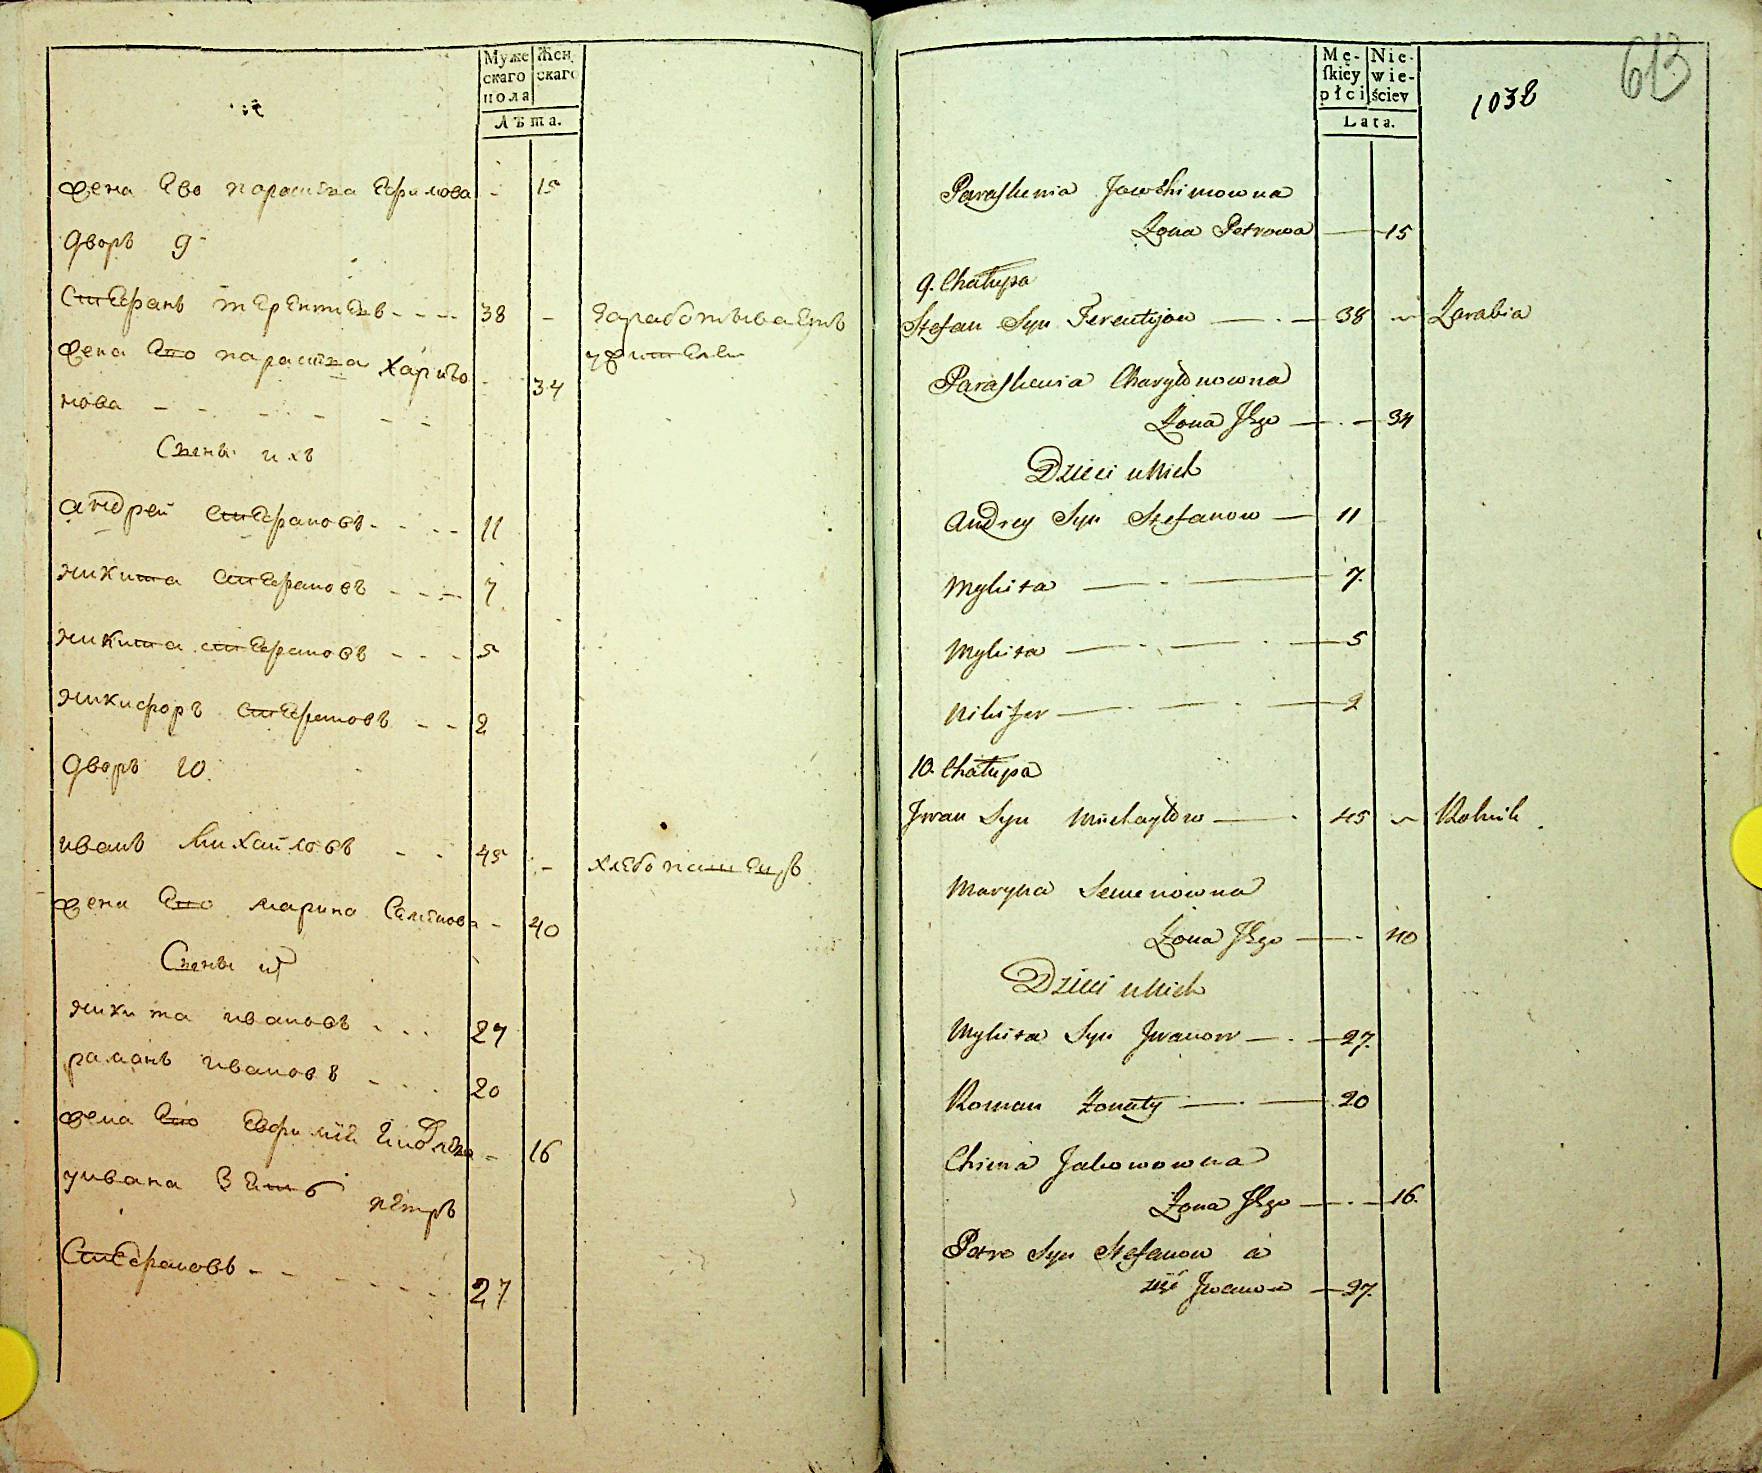 Муже
скаго
пола
Жен
скаго
Лѣта.
жена Ево парашка Ефимова - 15
дворъ 9
Стефанъ терентьев - - - - 38 - Зарабо тываетъ
жена Его парашка Харито - 34
нова - - - - - -
Сыны ихъ
андрей стефановъ - - - - 11
никита стефановъ - - - 7
никита стефановъ - - - 5
никифоръ стефановъ - - 2
дворъ 10.
иванъ Михайловъ - - 45 - хлебопашецъ
жена Его марина Семенова - 40
Сыны их
никита ивановъ - - - 27
раманъ ивановъ - - - 20
жена Его Евфимія - 16
уивана зеть петръ
Стефановъ - - - - - - 27
Mę-
skiey
płci
Nie-
wie-
ściey
Lata.
1032
613
Paraskewia Jowchimowna
Żona Petrowa — 15
9. Chałupa
Stefan Syn Terentijow — . — 38 ~ Zarabia
Paraskewia Charytonowna
Żona Jego — . — 34
Dzieci u Nich
Andrey Syn Stefanow — 11
Mykita — . — 7.
Mykita — . — . — 5
Nikifer — . — . — 2
10. Chałupa
Jwan Syn Michayłow — . 45 ~ Rolnik
Maryna Semenowna
Żona Jego — . 40
Dzieci u Nich
Mykita Syn Jwanow — . — 27.
Roman Żonaty — . — 20
Chima Jakowowna
Żona Jego — . — 16.
Petro Syn Stefanow a
zięć Jwanow — 27.